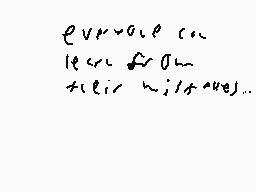 everyone can
learn from
their mistakes...